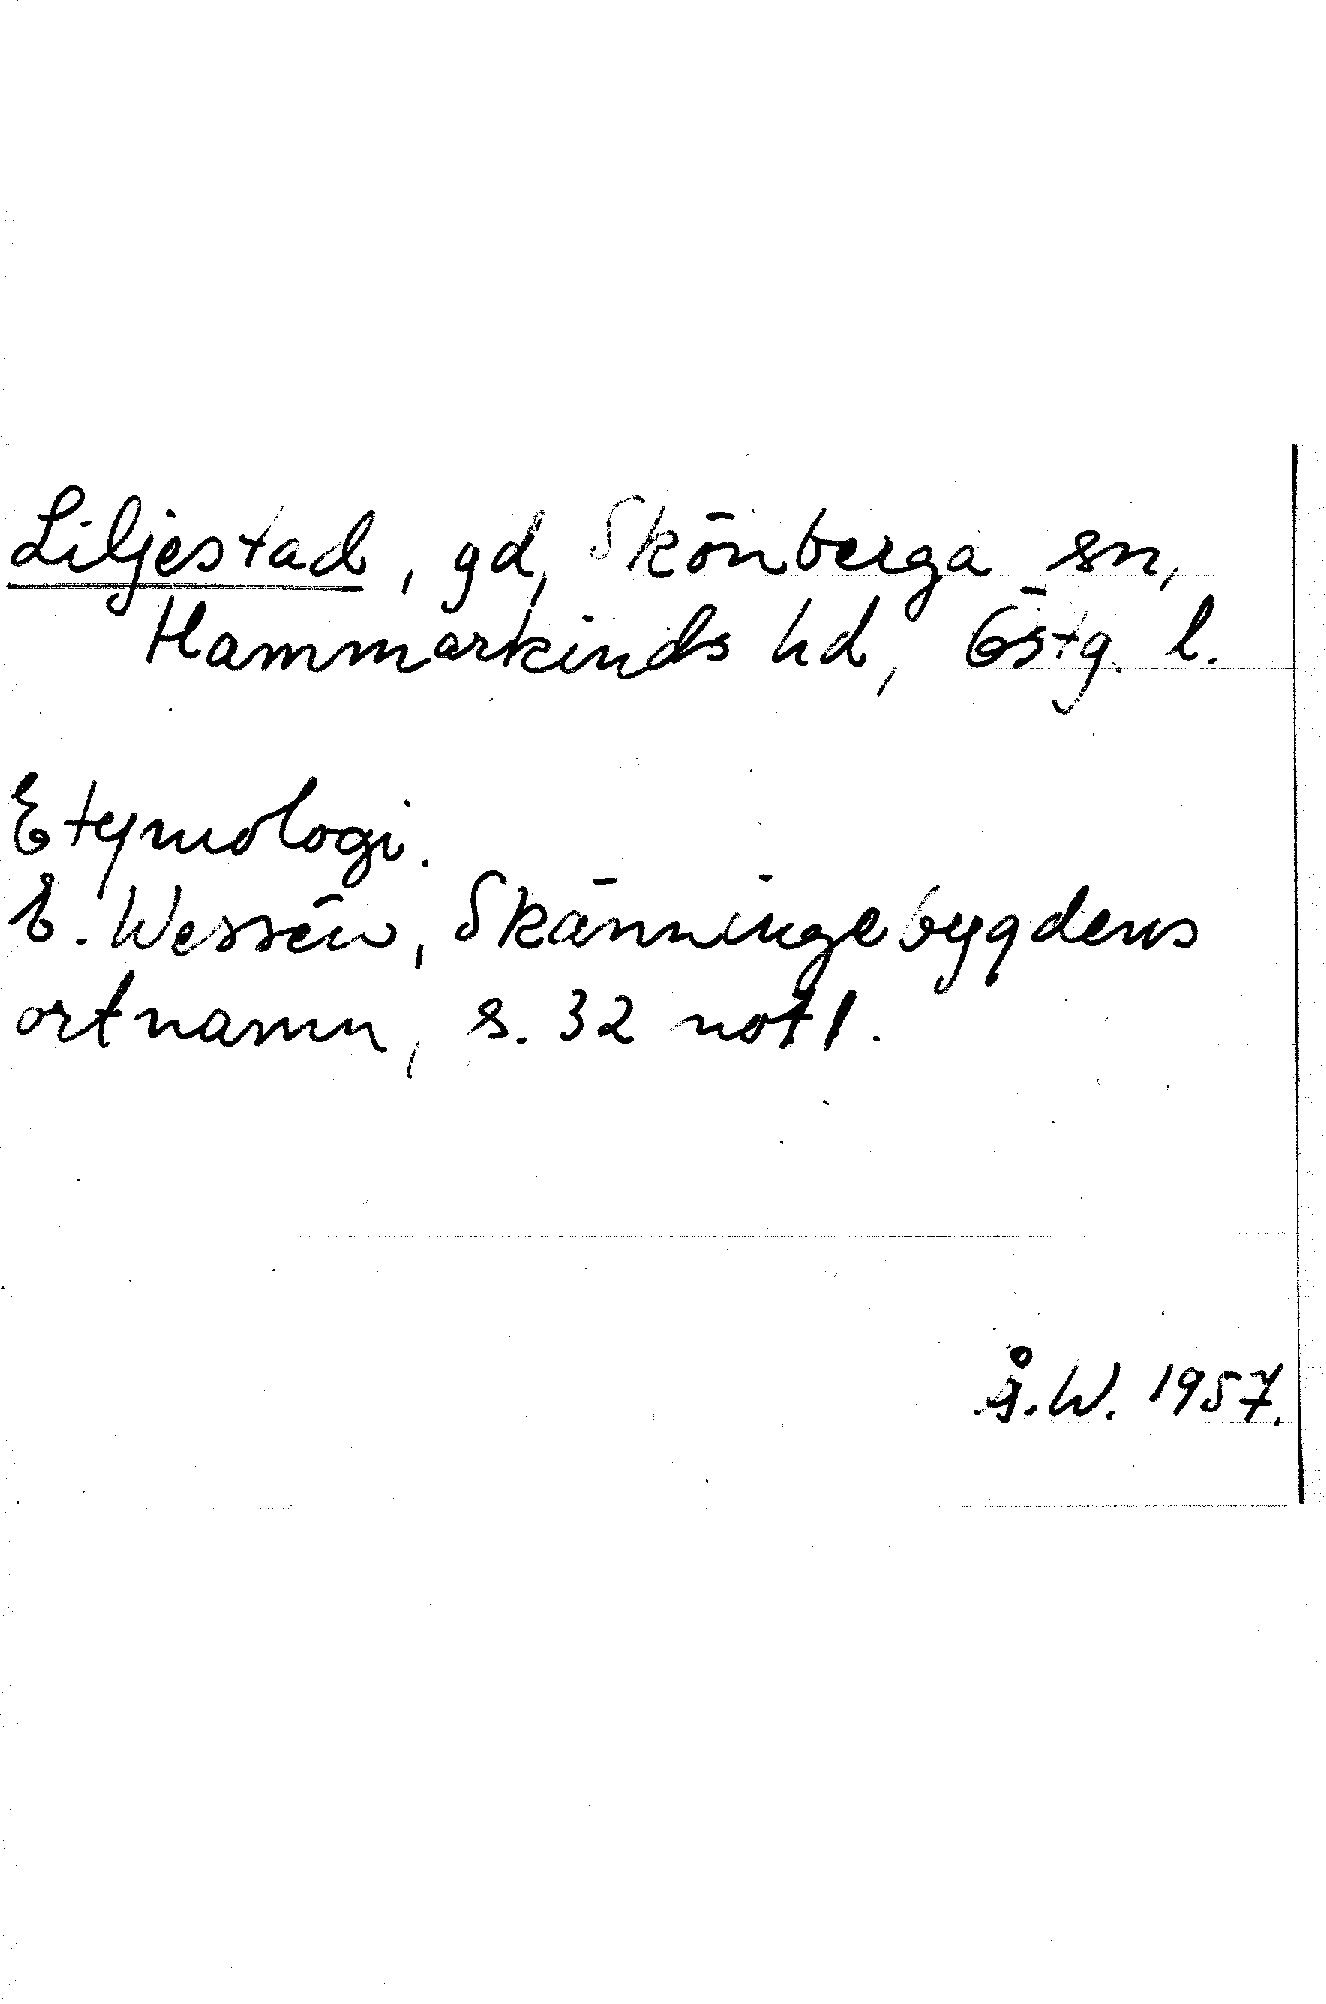 Liljestad, gd, Skönberga sn,
Hammarkinds hd, Östg. l.
Etymologi.
E. Wessén, Skänningebygdens
ortnamn, s. 32 not 1.
Å.W. 1957.